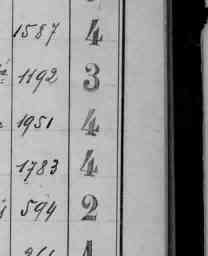 1587 4
1192 3
1951 4
1783 4
594 2